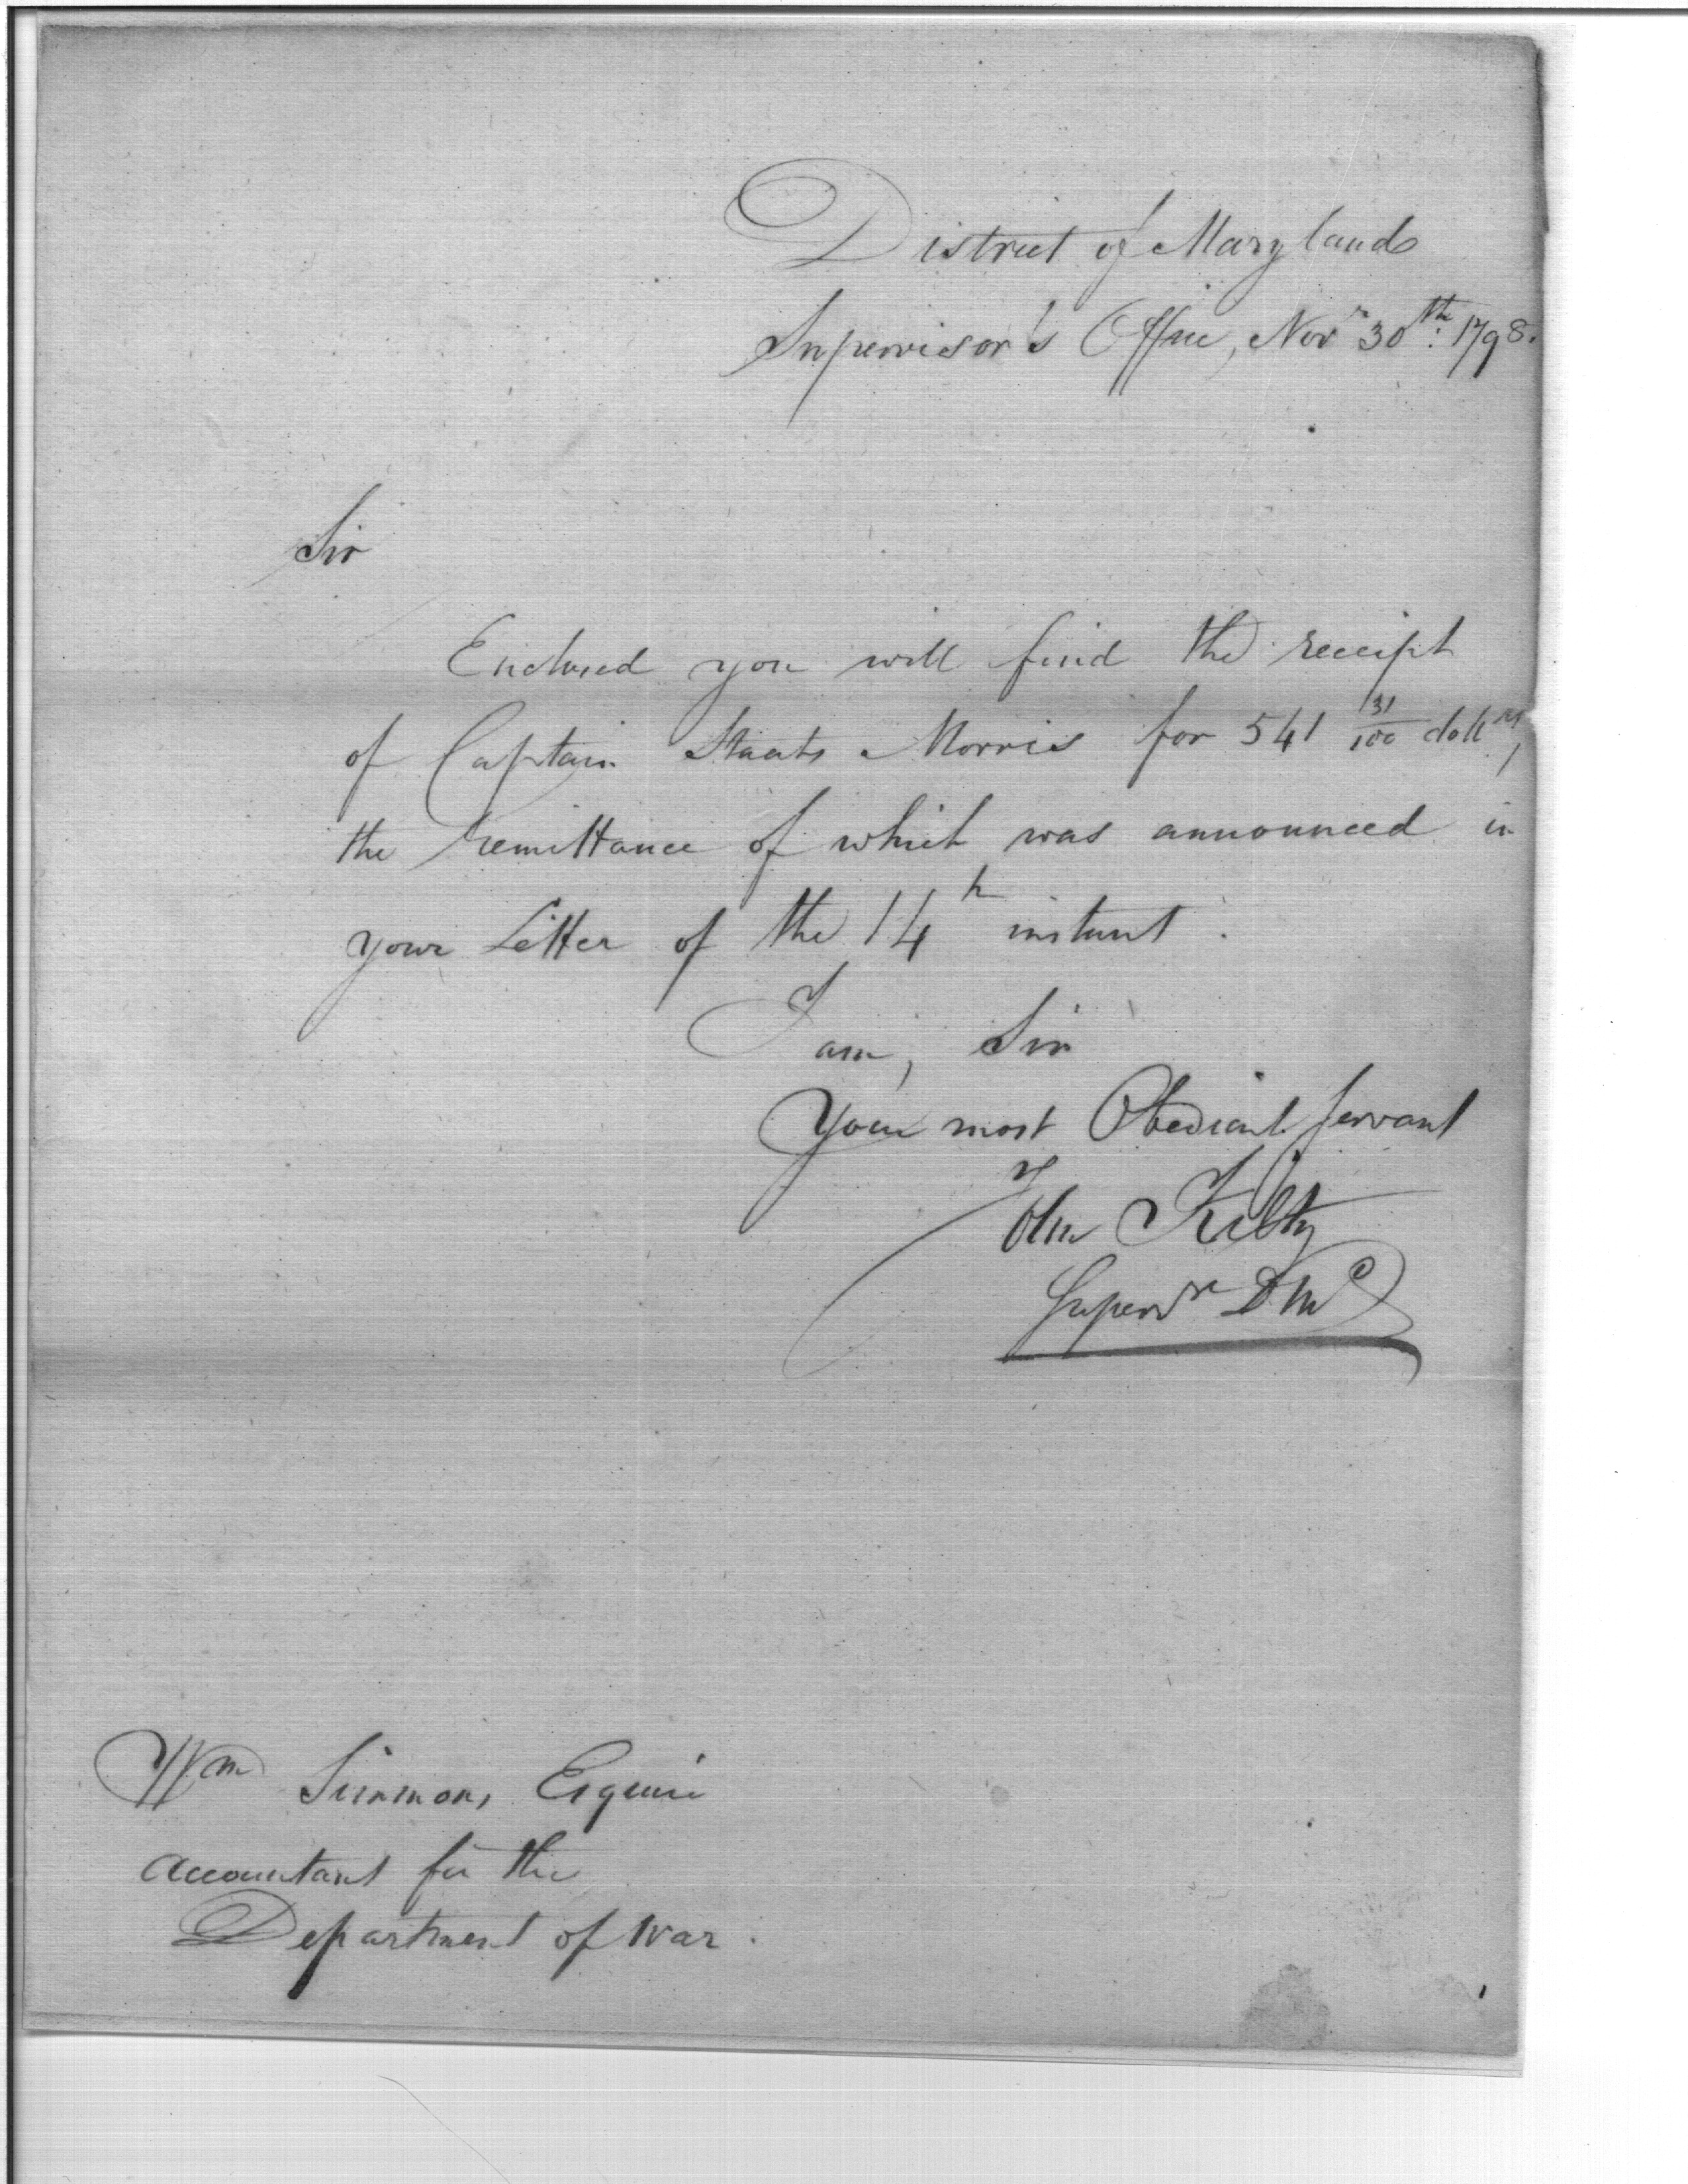 District of Maryland
Supervisor's Office, Novr 30th: 1798.
Sir
Enclosed you will find the receipt
of Captain Staats Morris for 541 31/100 dollrs,
the remittance of which was announced in
your Letter of the 14h instant.
I am, Sir
Your most Obedient servant
John Kilty
Supervr D Md
Wm Simmons Esquire
Accountant for the
Department of War.